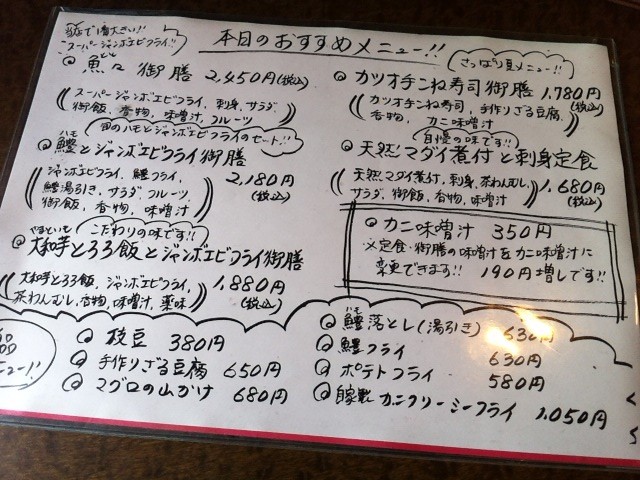 本日のおすすめメニュー!!
当店で1番大きい!!
スーパージャンボエビフライ!!
とと
魚々御膳 2,450円(税込)
スーパージャンボエビフライ、刺身、サラダ、
御飯、香物、味噌汁、フルーツ
旬のハモとジャンボエビフライのセット!!
ハモ
鱧とジャンボエビフライ御膳
2,180円
(税込)
ジャンボエビフライ、鱧フライ、
鱧湯引き、サラダ、フルーツ、
御飯、香物、味噌汁
こだわりの味です!!
やまといも
大和芋とろろ飯とジャンボエビフライ御膳
1,880円
(税込)
大和芋とろろ飯、ジャンボエビフライ、
茶わんむし、香物、味噌汁、薬味
さっぱり夏メニュー!!
カツオ手こね寿司御膳 1,780円
(税込)
カツオ手こね寿司、手作りざる豆腐、
香物、カニ味噌汁
自慢の味です!!
天然マダイ煮付と刺身定食
1,680円
(税込)
天然マダイ煮付、刺身、茶わんむし、
サラダ、御飯、香物、味噌汁
カニ味噌汁 350円
※定食・御膳の味噌汁をカニ味噌汁に
変更できます!! 190円増しです!!
品
ニュー!!
枝豆 380円
手作りざる豆腐 650円
マグロの山かけ 680円
ハモ
鱧落とし(湯引き) 630円
鱧フライ 630円
ポテトフライ 580円
自家製カニクリーミーフライ 1,050円